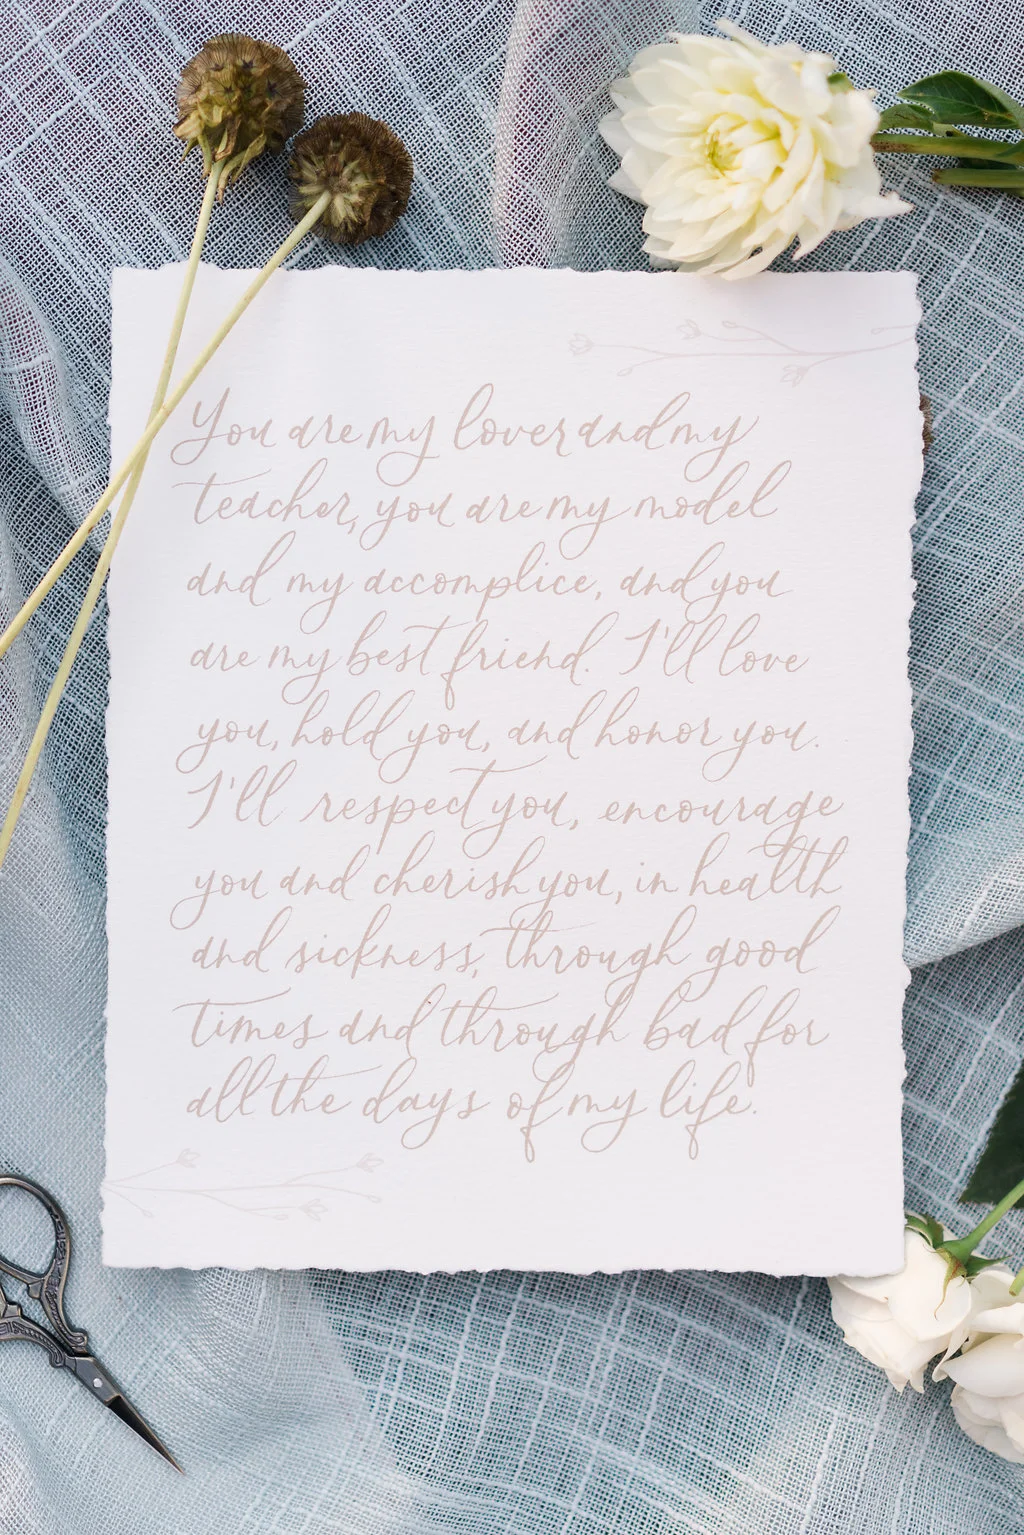 You are my lover and my
teacher, you are my model
and my accomplice, and you
are my best friend. I'll love
you, hold you, and honor you.
I'll respect you, encourage
you and cherish you, in health
and sickness, through good
times and through bad for
all the days of my life.